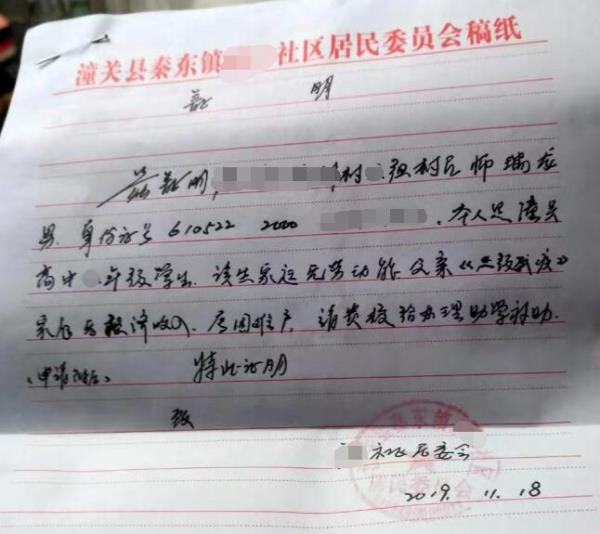 潼关县秦东镇 社区居民委员会稿纸
证 明
兹证明, 村 组村民师瑞龙
男.身份证号610522 2000 .本人是潼关
高中 年级学生.该生家庭无劳动能 父亲《二级残疾》
家庭无经济收入.属困难户,请贵校给办理助学补助.
(申请附后) 特此证明
致
社区居委会
2019.11.18